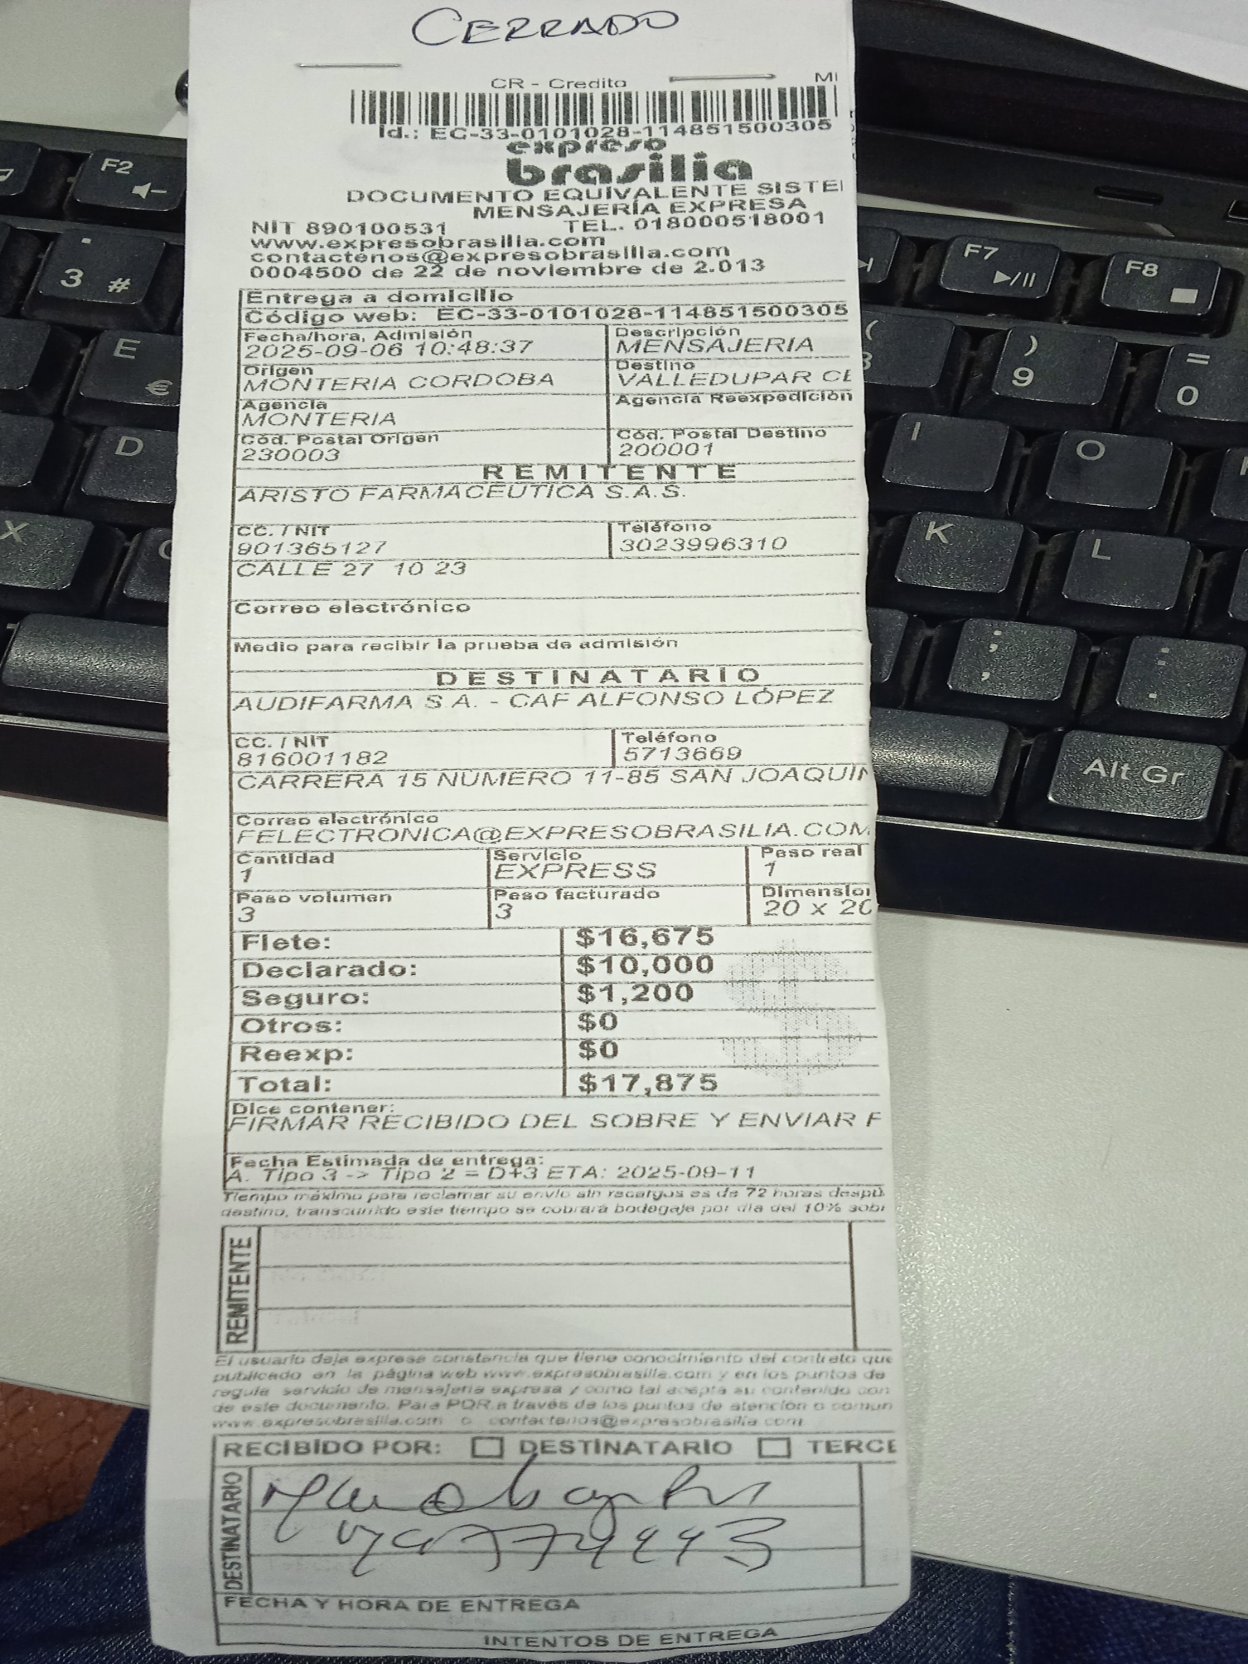 CERRADO
CR - Credito
Id.: EC-33-0101028-114851500305
expreso
brasilia
DOCUMENTO EQUIVALENTE SISTE
MENSAJERÍA EXPRESA
NIT 890100531 TEL. 018000518001
www.expresobrasilia.com
contactenos@expresobrasilia.com
0004500 de 22 de noviembre de 2.013
Entrega a domicilio
Código web: EC-33-0101028-114851500305
Fecha/hora, Admisión Descripción
2025-09-06 10:48:37 MENSAJERIA
Origen Destino
MONTERIA CORDOBA VALLEDUPAR CE
Agencia Agencia Reexpedición
MONTERIA
Cód. Postal Origen Cód. Postal Destino
230003 200001
REMITENTE
ARISTO FARMACEUTICA S.A.S.
CC. / NIT Teléfono
901365127 3023996310
CALLE 27 10 23
Correo electrónico
Medio para recibir la prueba de admisión
DESTINATARIO
AUDIFARMA S A. - CAF ALFONSO LÓPEZ
CC. / NIT Teléfono
816001182 5713669
CARRERA 15 NUMERO 11-85 SAN JOAQUIN
Correo electrónico
FELECTRONICA@EXPRESOBRASILIA.COM
Cantidad Servicio Peso real
1 EXPRESS 1
Peso volumen Peso facturado Dimension
3 3 20 x 20
Flete: $16,675
Declarado: $10,000
Seguro: $1,200
Otros: $0
Reexp: $0
Total: $17,875
Dice contener:
FIRMAR RECIBIDO DEL SOBRE Y ENVIAR F
Fecha Estimada de entrega:
A. Tipo 3 -> Tipo 2 = D+3 ETA: 2025-09-11
Tiempo máximo para reclamar su envío sin recargos es de 72 horas despu
destino, transcurrido este tiempo se cobrará bodegaje por día del 10% sobr
REMITENTE
El usuario deja expresa constancia que tiene conocimiento del contrato que
publicado en la página web www.expresobrasilia.com y en los puntos de
regula servicio de mensajeria expresa y como tal acepta su contenido con
de este documento. Para PQR a través de los puntos de atención o comun
www.expresobrasilia.com o contactenos@expresobrasilia.com
RECIBIDO POR: DESTINATARIO TERCE
DESTINATARIO
FECHA Y HORA DE ENTREGA
INTENTOS DE ENTREGA
F2
3 #
E €
D
X
F7
F8
)
9
=
0
I
O
K
L
;
,
:
.
Alt Gr